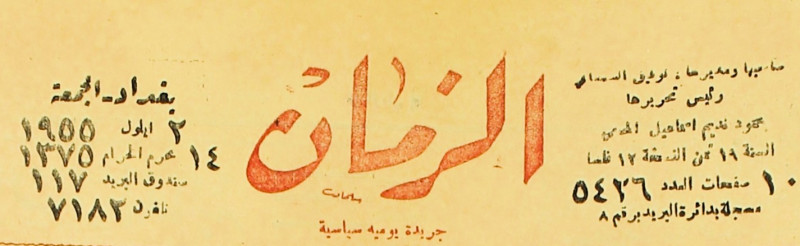 صاحبها ومديرها: توفيق السمعاني
رئيس تحريرها
محمود نديم اسماعيل المحامي
السنة ١٩ ثمن النسخة ١٢ فلسا
١٠ صفحات العدد ٥٤٢٦
مسجلة بدائرة البريد برقم ٨
الزمان
جريدة يومية سياسية
بغداد - الجمعة
٢ ايلول ١٩٥٥
١٤ محرم الحرام ١٣٧٥
صندوق البريد ١١٧
تلفون ٧١٨٣